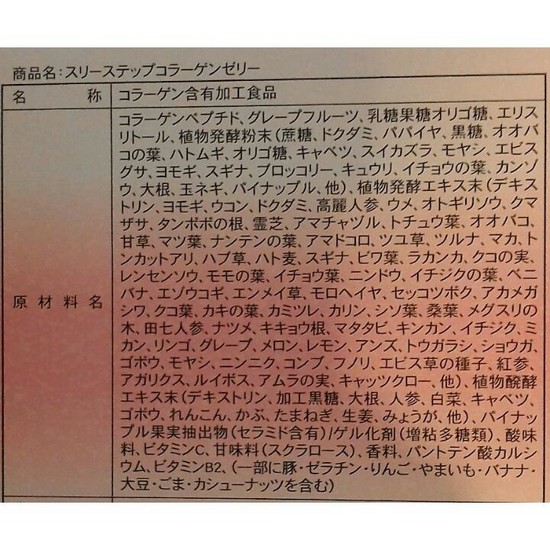 商品名:スリーステップコラーゲンゼリー
名 称 コラーゲン含有加工食品
コラーゲンペプチド、グレープフルーツ、乳糖果糖オリゴ糖、エリス
リトール、植物発酵粉末(蔗糖、ドクダミ、パパイヤ、黒糖、オオバ
コの葉、ハトムギ、オリゴ糖、キャベツ、スイカズラ、モヤシ、エビス
グサ、ヨモギ、スギナ、ブロッコリー、キュウリ、イチョウの葉、カンゾ
ウ、大根、玉ネギ、パイナップル、他)、植物発酵エキス末(デキス
トリン、ヨモギ、ウコン、ドクダミ、高麗人参、ウメ、オトギリソウ、ク
マザサ、タンポポの根、霊芝、アマチャヅル、トチュウ葉、オオバコ、
甘草、マツ葉、ナンテンの葉、アマドコロ、ツユ草、ツルナ、マカ、ト
ンカットアリ、ハブ草、ハト麦、スギナ、ビワ葉、ラカンカ、クコの実、
レンセンソウ、モモの葉、イチョウ葉、ニンドウ、イチジクの葉、ベニ
バナ、エゾウコギ、エンメイ草、モロヘイヤ、セッコツボク、アカメガ
シワ、クコ葉、カキの葉、カミツレ、カリン、シソ葉、桑葉、メグスリの
原材料名 木、田七人参、ナツメ、キキョウ根、マタタビ、キンカン、イチジク、ミ
カン、リンゴ、グレープ、メロン、レモン、アンズ、トウガラシ、ショウガ、
ゴボウ、モヤシ、ニンニク、コンブ、フノリ、エビス草の種子、紅参、
アガリクス、ルイボス、アムラの実、キャッツクロー、他)、植物醗酵
エキス末(デキストリン、加工黒糖、大根、人参、白菜、キャベツ、
ゴボウ、れんこん、かぶ、たまねぎ、生姜、みょうが、他)、パイナッ
プル果実抽出物(セラミド含有)/ゲル化剤(増粘多糖類)、酸味
料、ビタミンC、甘味料(スクラロース)、香料、パントテン酸カルシ
ウム、ビタミンB2、(一部に豚・ゼラチン・りんご・やまいも・バナナ・
大豆・ごま・カシューナッツを含む)